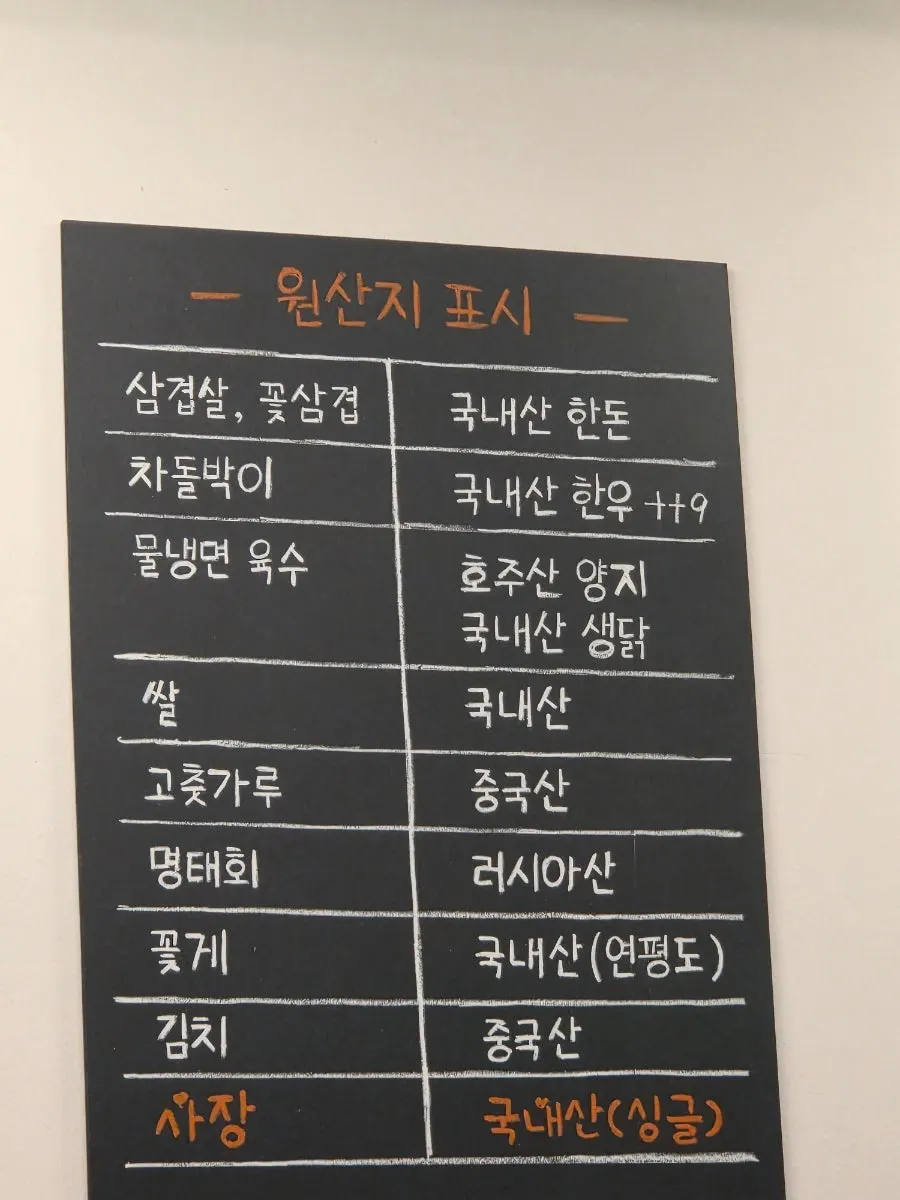 - 원산지 표시 -
삼겹살, 꽃삼겹 국내산 한돈
차돌박이 국내산 한우 ++9
물냉면 육수 호주산 양지
국내산 생닭
쌀 국내산
고춧가루 중국산
명태회 러시아산
꽃게 국내산(연평도)
김치 중국산
사장 국내산(싱글)